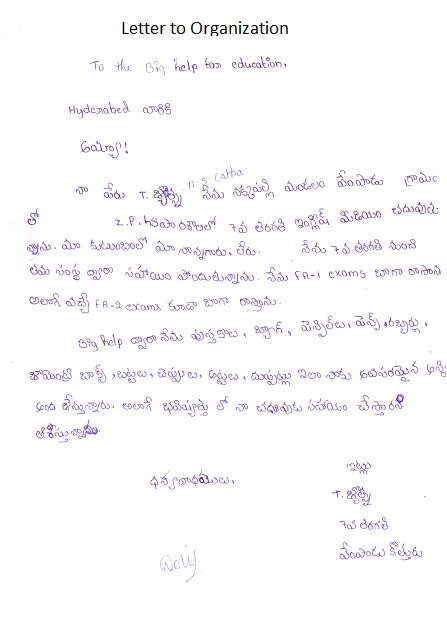 Letter to Organization
To the Big help for education,
Hyderabed వారికి
అయ్యా!
నా పేరు T. జ్యోత్స్న నేను నక్కపల్లి మండలం వేంపాడు గ్రామం
లో Z.P. హైపాఠశాలలో 7వ తరగతి ఇంగ్లీష్ మీడియం చదువుతు
న్నాను. మా కుటుంబంలో మా నాన్నగారు, లేరు. నేను 7వ తరగతి నుంచి
తమ సంస్థ ద్వారా సహాయం పొందుతున్నాను. నేను FA-1 exams బాగా రాసాను
అలాగే వచ్చే FA-2 exams కూడా బాగా రాస్తాను.
Big help ద్వారా నేను పుస్తకాలు, బ్యాగ్, పెన్సిల్‌లు, పెన్స్, రబ్బర్లు,
జామెంట్రి బాక్స్, బట్టలు, చెప్పులు, అట్టలు, దుప్పట్లు ఇలా నాకు అవసరమైన అన్ని
అంద జేస్తున్నారు. అలాగే భవిష్యత్తు లో నా చదువుకు సహాయం చేస్తారని
ఆశిస్తున్నాను
ధన్యవాధములు,
ఇట్లు
T. జ్యోత్స్న
7వ తరగతి
వేంపాడు కొత్తూరు